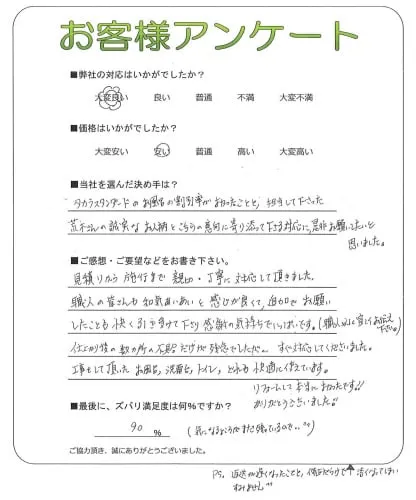 お客様アンケート
■弊社の対応はいかがでしたか？
大変良い 良い 普通 不満 大変不満
■価格はいかがでしたか？
大変安い 安い 普通 高い 大変高い
■当社を選んだ決め手は？
タカラスタンダードのお風呂の割引率が よかったことと、担当して下さった
さんの誠実な お人柄と こちらの意向に寄り添って下さる対応に、是非お願いしたいと
思いました。
■ご感想・ご要望などをお書き下さい。
見積りから 施行まで 親切・丁寧に対応して頂きました。
職人の皆さんも 和気あいあいと 感じが良くて、追加でお願い
したことも 快く引き受けて下さり 感謝の気持ちでいっぱいです。(職人さんに宜しくお伝え
下さい。)
仕上がり後の数か所の不具合だけが残念でしたが、すぐ対応してくださいました。
工事をして頂いた お風呂、洗面台、トイレ、どれも 快適に使えています。
リフォームして本当によかったです!!
ありがとうございました!
■最後に、ズバリ満足度は何％ですか？
90 ％ (気になるところがまだ残っているので...)
ご協力頂き、誠にありがとうございました。
PS. 返送が遅くなったことと、 なってしまい
すみません